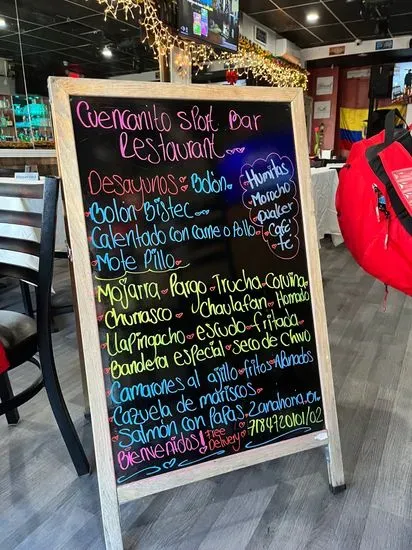 Cuencanito sport Bar
Restaurant
Desayunos: Bolón.
Bolón Bistec
Calentado con carne o Pollo
Mote Pillo
Humitas
Morocho
Quaker
Café
Te
Mojarra Pargo Trucha Corvina
Churrasco Chaulafan Hornado
Llapingacho escudo fritada
Bandera especial seco de chivo
Camarones al ajillo fritos Apanados
Cazuela de mariscos
Salmón con Papas Zanahoria,
Bienvenidos! Free Delivery 7184720101/02